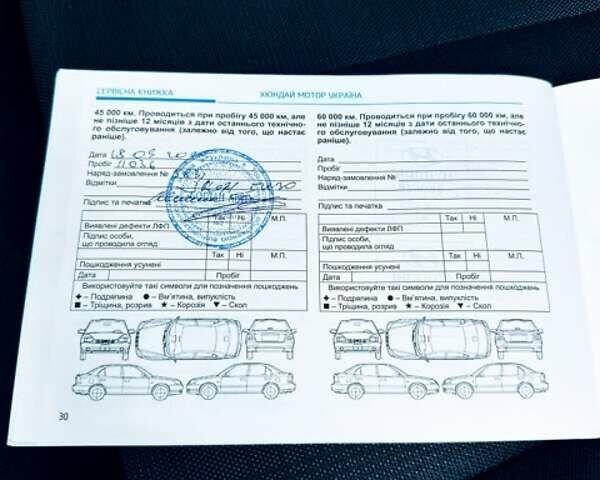 СЕРВІСНА КНИЖКА
ХЮНДАЙ МОТОР УКРАЇНА
45 000 км. Проводиться при пробігу 45 000 км, але
не пізніше 12 місяців з дати останнього технічно-
го обслуговування (залежно від того, що настає
раніше).
Дата
Пробіг
Наряд-замовлення №
Відмітки
Підпис та печатка
Так Ні М.П.
Виявлені дефекти ЛФП
Підпис особи,
що проводила огляд
Так Ні М.П.
Пошкодження усунені
Дата Пробіг
Використовуйте такі символи для позначення пошкоджень
– Подряпина – Вм'ятина, випуклість
– Тріщина, розрив – Корозія – Скол
60 000 км. Проводиться при пробігу 60 000 км, але
не пізніше 12 місяців з дати останнього технічно-
го обслуговування (залежно від того, що настає
раніше).
Дата
Пробіг
Наряд-замовлення №
Відмітки
Підпис та печатка
Так Ні М.П.
Виявлені дефекти ЛФП
Підпис особи,
що проводила огляд
Так Ні М.П.
Пошкодження усунені
Дата Пробіг
Використовуйте такі символи для позначення пошкоджень
– Подряпина – Вм'ятина, випуклість
– Тріщина, розрив – Корозія – Скол
30